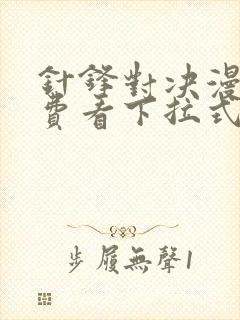 針鋒對決漫
費看下拉式
步履無聲1